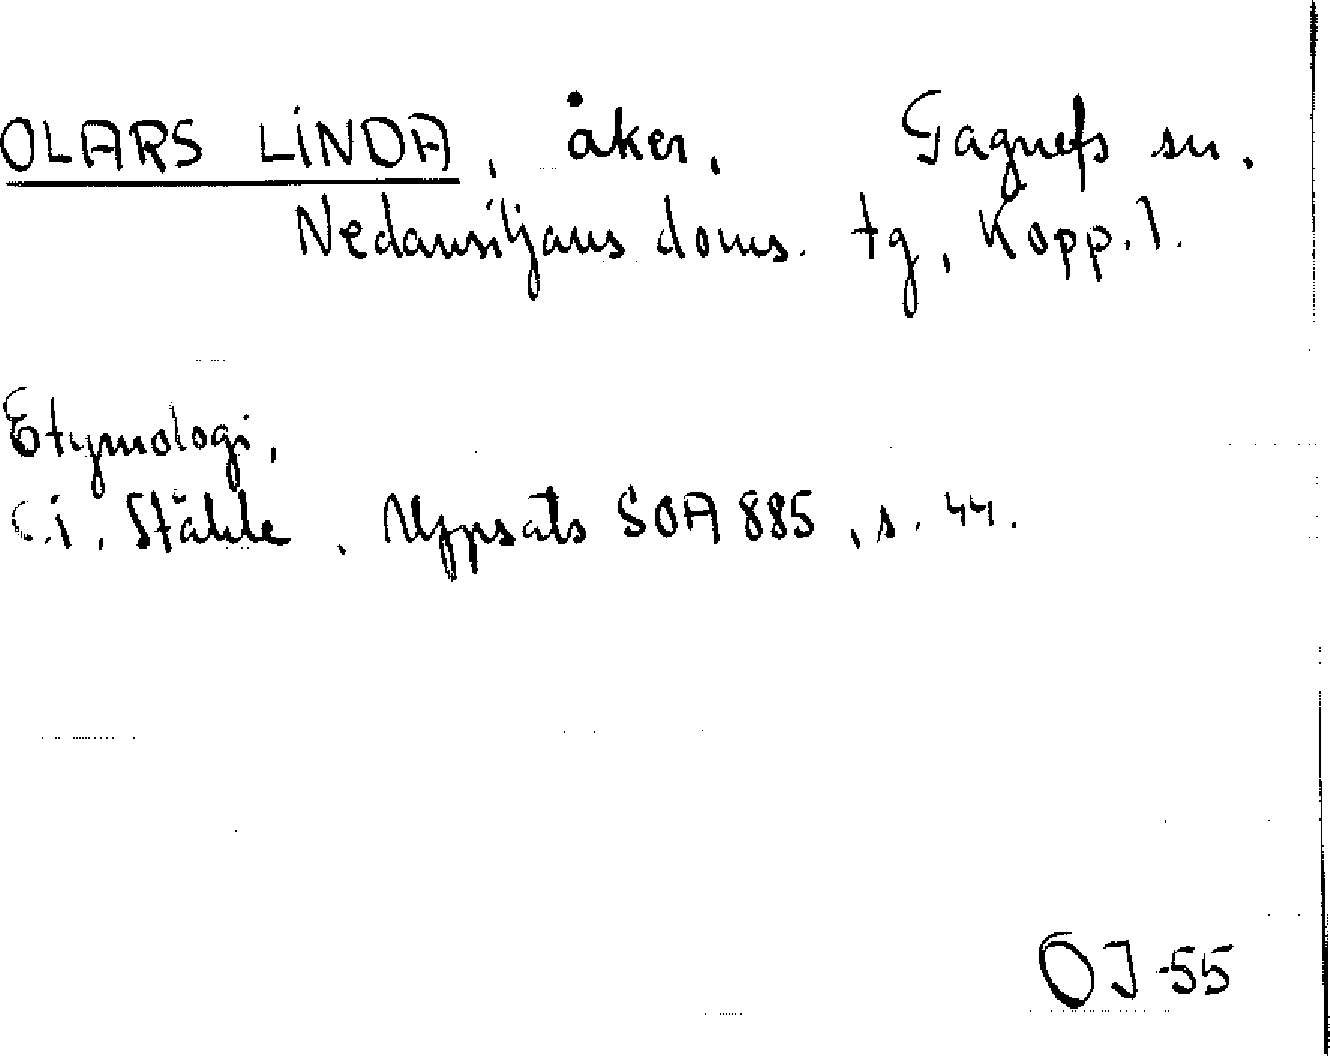 OLARS LINDA, åker. Gagnefs sn.
Nedansiljans doms. tg, Kopp.l.
Etymologi.
C.I. Ståhle. Uppsats SOA 885, s. 44.
OJ-55